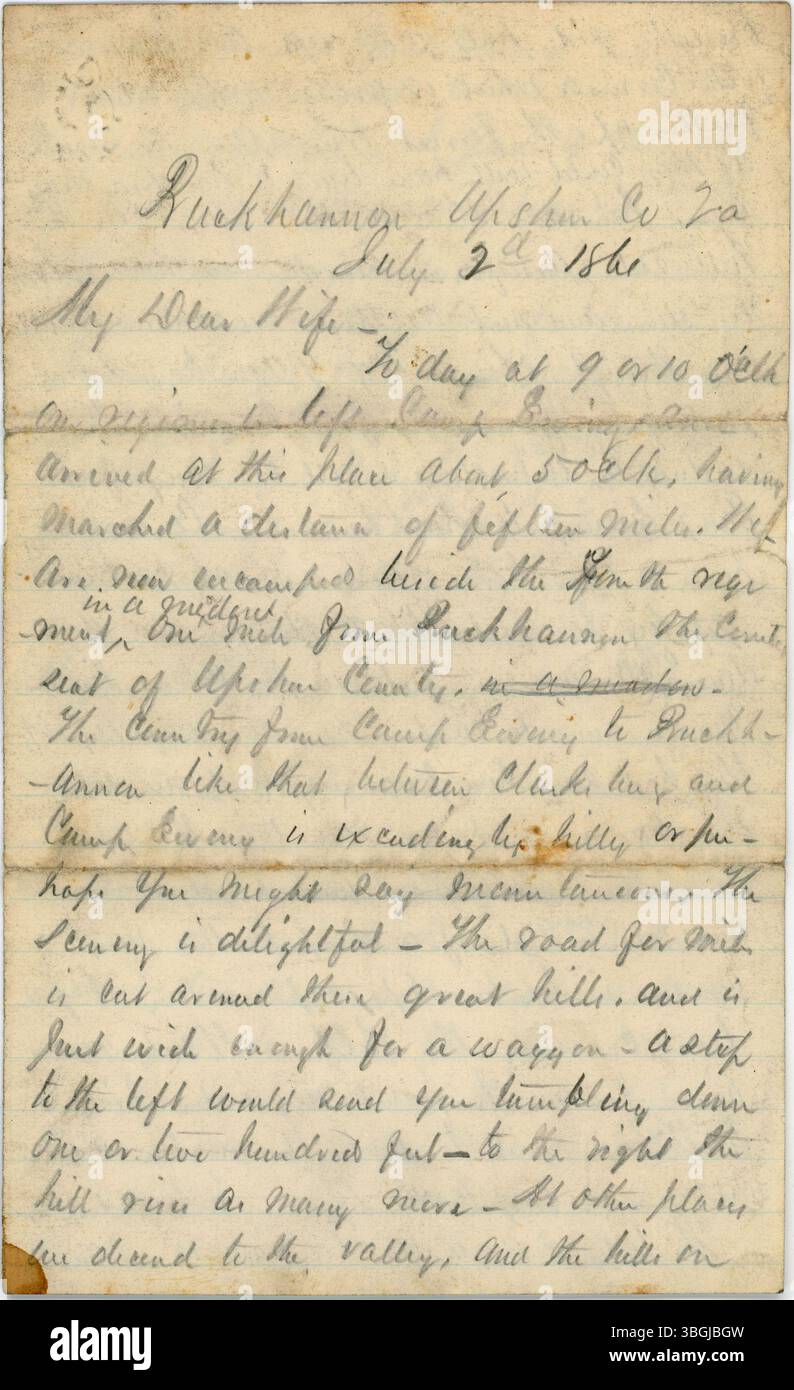 Buckhannon Upshur Co Va
July 2d 1861
My Dear Wife –
To day at 9 or 10 Oclk
our regiment left Camp Ewing, and
arrived at this place about 5 oclk, having
marched a distance of fifteen miles. We
are now encamped beside the fourth regi
in a meadow
ment, one mile from Buckhannon the County
seat of Upshur County. in a meadow.
The Country from Camp Ewing to Buckh-
-annon like that between Clarksburg and
Camp Ewing is exceedingly hilly or per-
haps you might say mountaneous. The
Scenery is delightful – The road for miles
is cut around these great hills, and is
Just wide enough for a waggon – a step
to the left would send you tumbling down
one or two hundred feet – to the right the
hill rises as many more – At other places
we decend to the valley, and the hills on
alamy
Image ID: 3BGJBGW
www.alamy.com